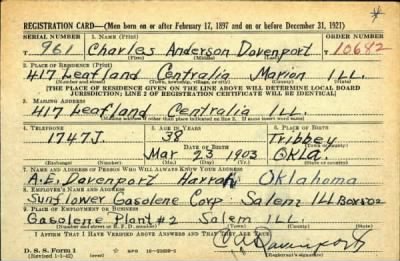 REGISTRATION CARD—(Men born on or after February 17, 1897 and on or before December 31, 1921)
SERIAL NUMBER 1. NAME (Print) ORDER NUMBER
T 961 Charles Anderson Davenport T 10682
2. PLACE OF RESIDENCE (Print)
417 Leafland Centralia Marion ILL.
(Number and street) (Town, township, village, or city) (County) (State)
[THE PLACE OF RESIDENCE GIVEN ON THE LINE ABOVE WILL DETERMINE LOCAL BOARD
JURISDICTION; LINE 2 OF REGISTRATION CERTIFICATE WILL BE IDENTICAL]
3. MAILING ADDRESS
417 Leafland Centralia ILL.
[Mailing address if other than place indicated on line 2. If same insert word same]
4. TELEPHONE 5. AGE IN YEARS 6. PLACE OF BIRTH
1747J. 38 Tribbey
DATE OF BIRTH
Mar 23 1903 Okla.
(Exchange) (Number) (Mo.) (Day) (Yr.) (State or country)
7. NAME AND ADDRESS OF PERSON WHO WILL ALWAYS KNOW YOUR ADDRESS
A.E. Davenport Harrah Oklahoma
8. EMPLOYER'S NAME AND ADDRESS
Sunflower Gasolene Corp: Salem ILL Box 502
9. PLACE OF EMPLOYMENT OR BUSINESS
Gasolene Plant #2 Salem ILL.
(Number and street or R. F. D. number) (Town) (County) (State)
I AFFIRM THAT I HAVE VERIFIED ABOVE ANSWERS AND THAT THEY ARE TRUE.
D. S. S. Form 1
(Revised 1-1-42) (over)
C A Davenport